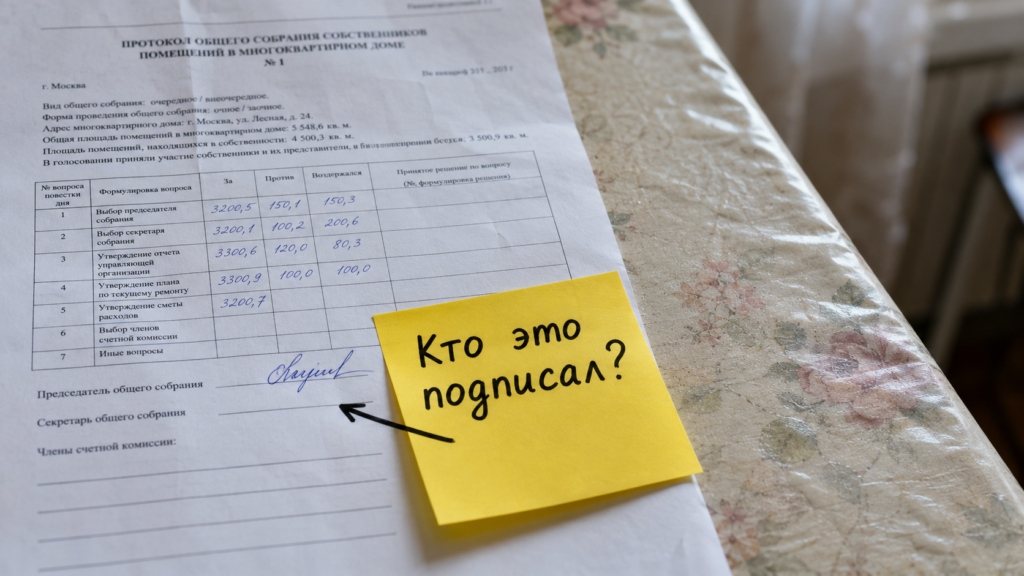 ПРОТОКОЛ ОБЩЕГО СОБРАНИЯ СОБСТВЕННИКОВ
ПОМЕЩЕНИЙ В МНОГОКВАРТИРНОМ ДОМЕ
№ 1
г. Москва
Вид общего собрания: очередное / внеочередное.
Форма проведения общего собрания: очное / заочное.
Адрес многоквартирного дома: г. Москва, ул. Лесная, д. 24.
Общая площадь помещений в многоквартирном доме: 5 548,6 кв. м.
Площадь помещений, находящихся в собственности: 4 500,3 кв. м.
В голосовании приняли участие собственники и их представители, в 3 500,9 кв. м.
№ вопроса повестки дня Формулировка вопроса За Против Воздержался Принятое решение по вопросу (№, формулировка решения)
1 Выбор председателя собрания 3200,5 150,1 150,3
2 Выбор секретаря собрания 3200,1 100,2 200,6
3 Утверждение отчета управляющей организации 3300,6 120,0 80,3
4 Утверждение плана по текущему ремонту 3300,9 100,0 100,0
5 Утверждение сметы расходов 3200,7
6 Выбор членов счетной комиссии
7 Иные вопросы
Председатель общего собрания
Секретарь общего собрания
Члены счетной комиссии:
Кто это
подписал?